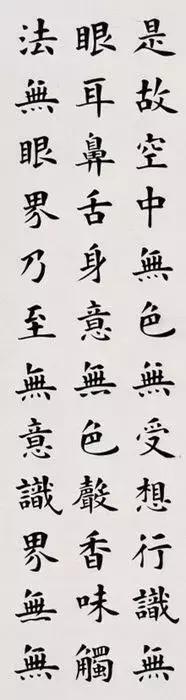 是故空中無色無受想行識無
眼耳鼻舌身意無色聲香味觸
法無眼界乃至無意識界無無